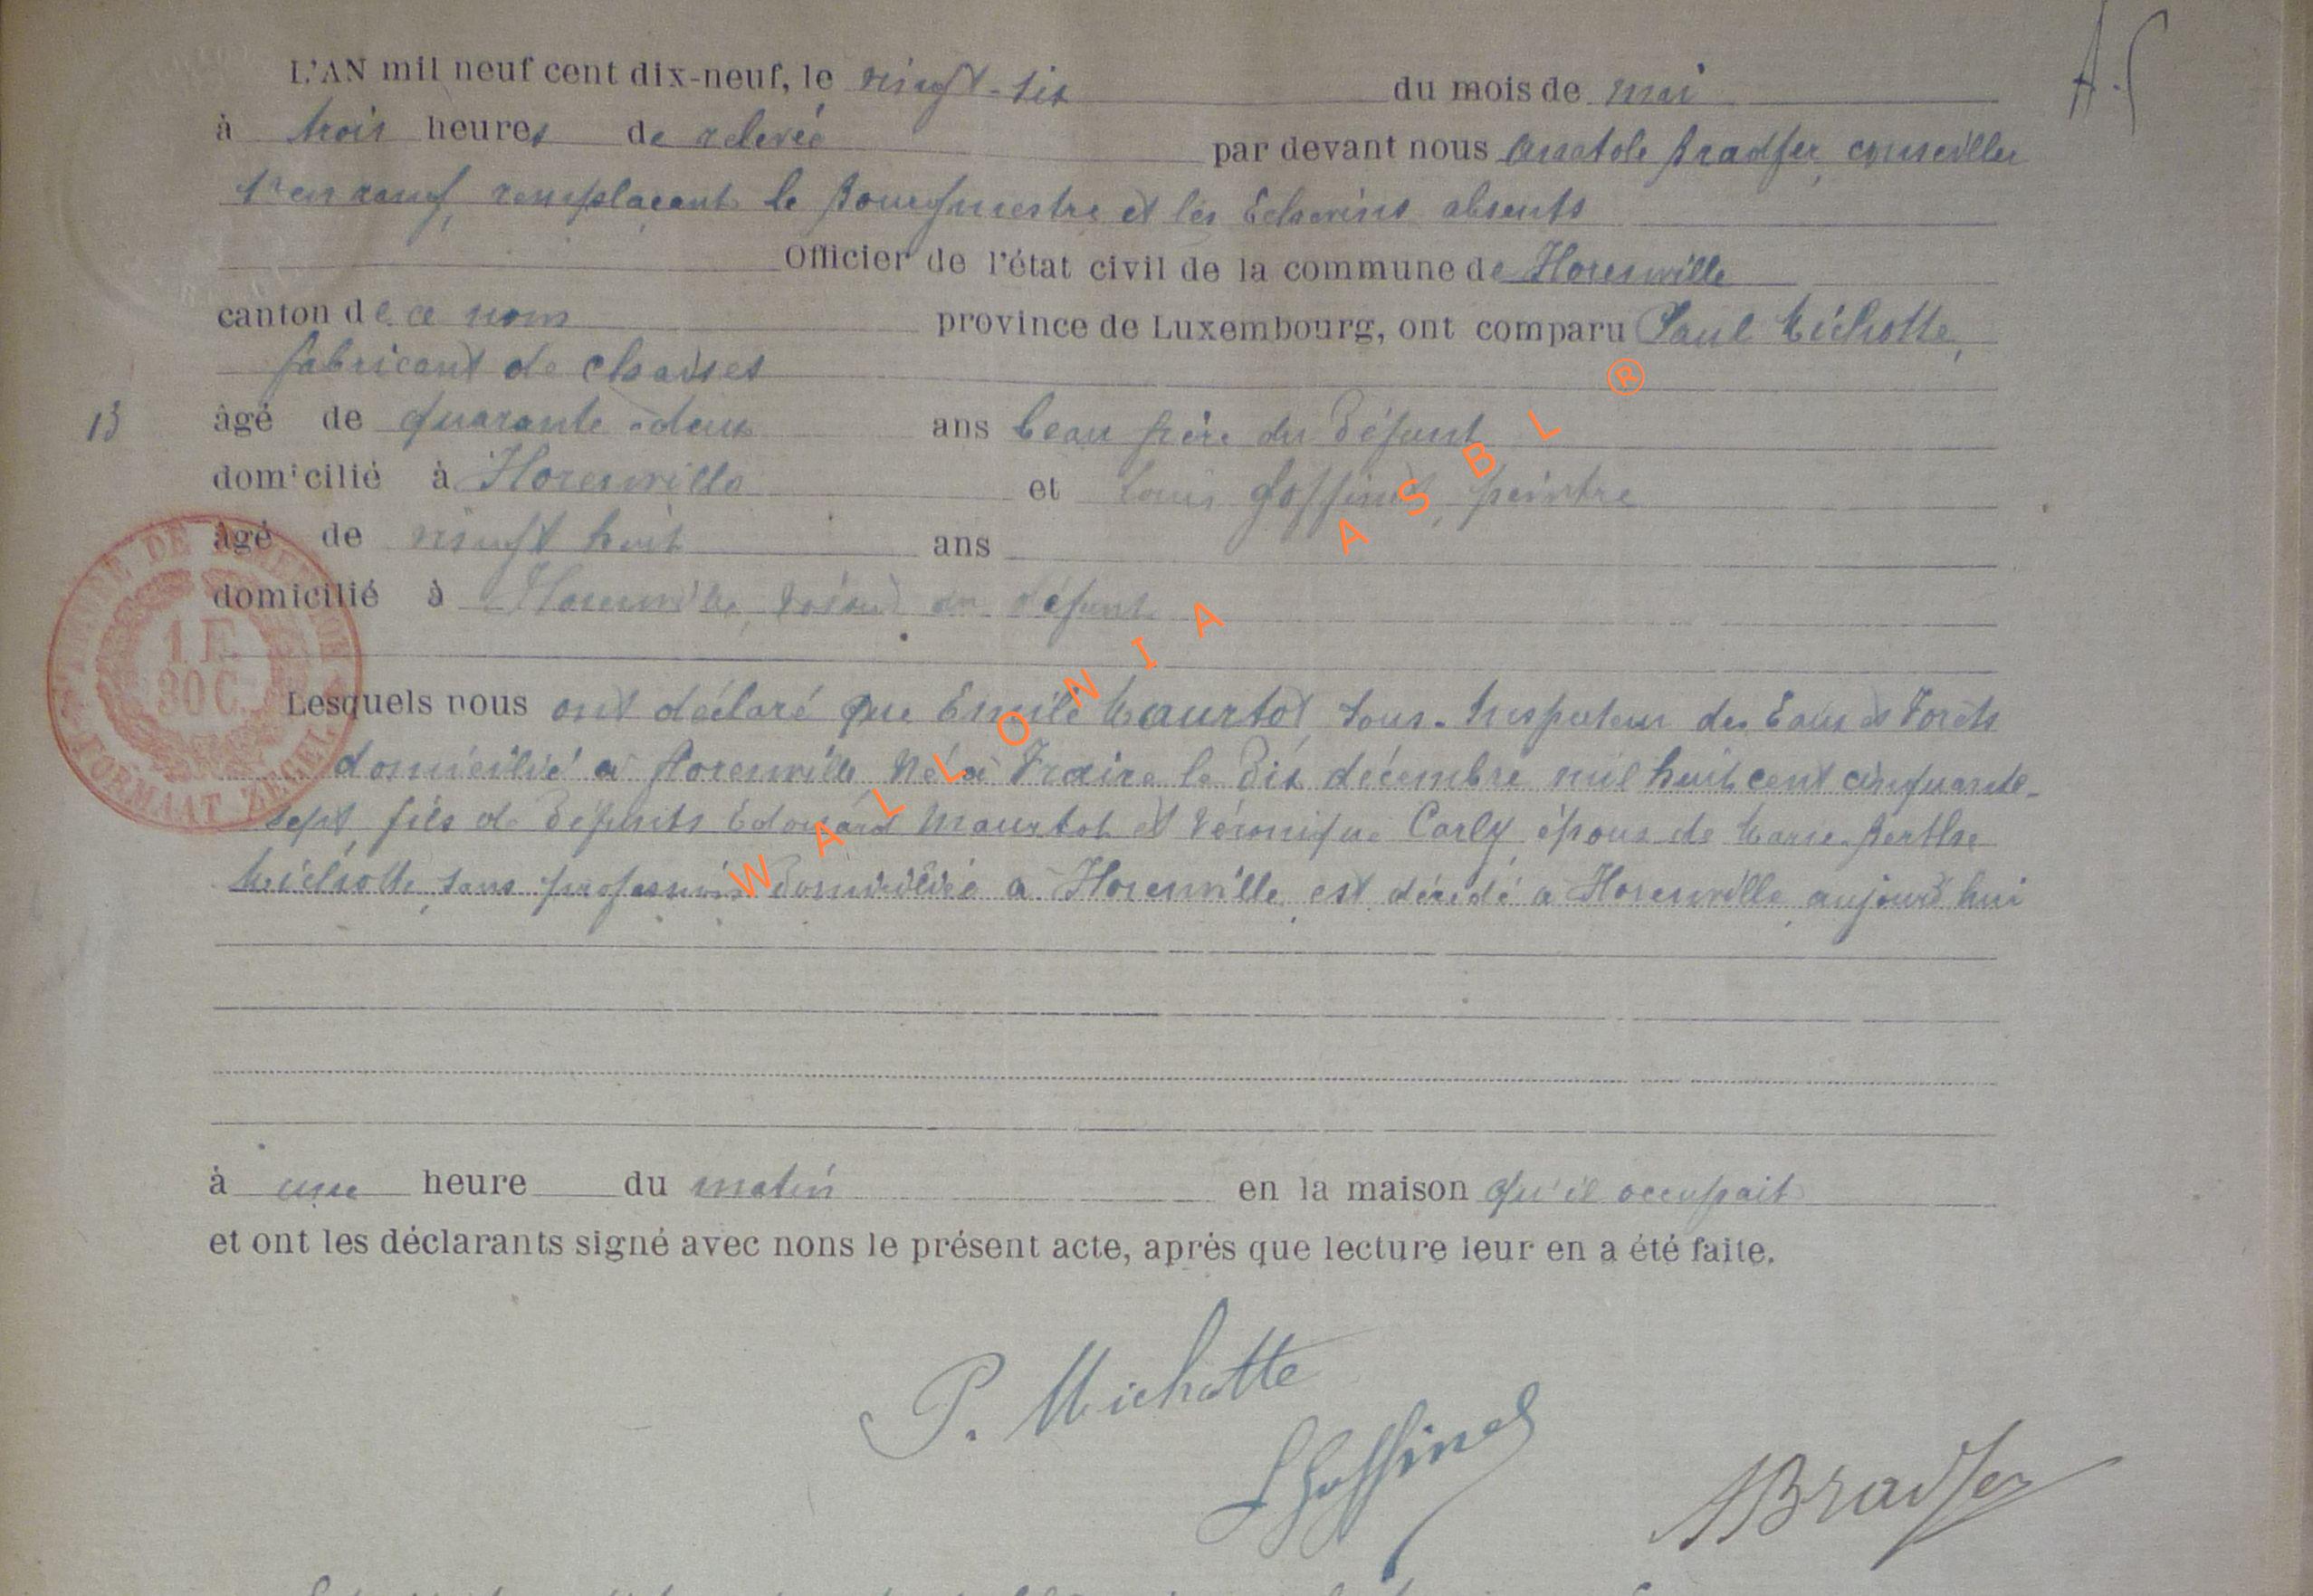 A.S
L'AN mil neuf cent dix-neuf, le vingt-six du mois de mai
à trois heures de relevée par devant nous Anatole Bradfer, conseiller
1er en rang, remplaçant le Bourgmestre et les Echevins absents
Officier de l'état civil de la commune de Florenville
canton de ce nom province de Luxembourg, ont comparu Paul Michotte,
fabricant de chaises
13 âgé de quarante-deux ans beau frère du Défunt
domicilié à Florenville et Louis Goffinet, peintre
âgé de vingt huit ans
domicilié à Florenville, voisin du défunt
Lesquels nous ont déclaré que Emile Maurtot, Sous-Inspecteur des Eaux et Forêts
domicilié à Florenville, Né à Fraire le Dix décembre mil huit cent cinquante-
sept, fils de Défunts Edouard Maurtot et Véronique Carly, époux de Marie-Berthe
Michotte, sans profession Domiciliée à Florenville, est décédé à Florenville, aujourd'hui
à une heure du matin en la maison qu'il occupait
et ont les déclarants signé avec nons le présent acte, après que lecture leur en a été faite.
P. Michotte
L Goffinet
ABradfer
TIMBRE DE DIMENSION
1 F.
30 C.
FORMAAT ZEGEL
WALLONIA ASBL ®